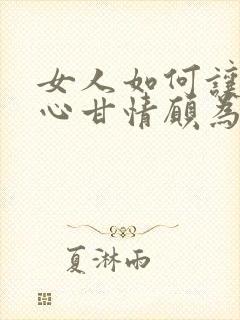 女人如何讓
心甘情願為
夏淋雨